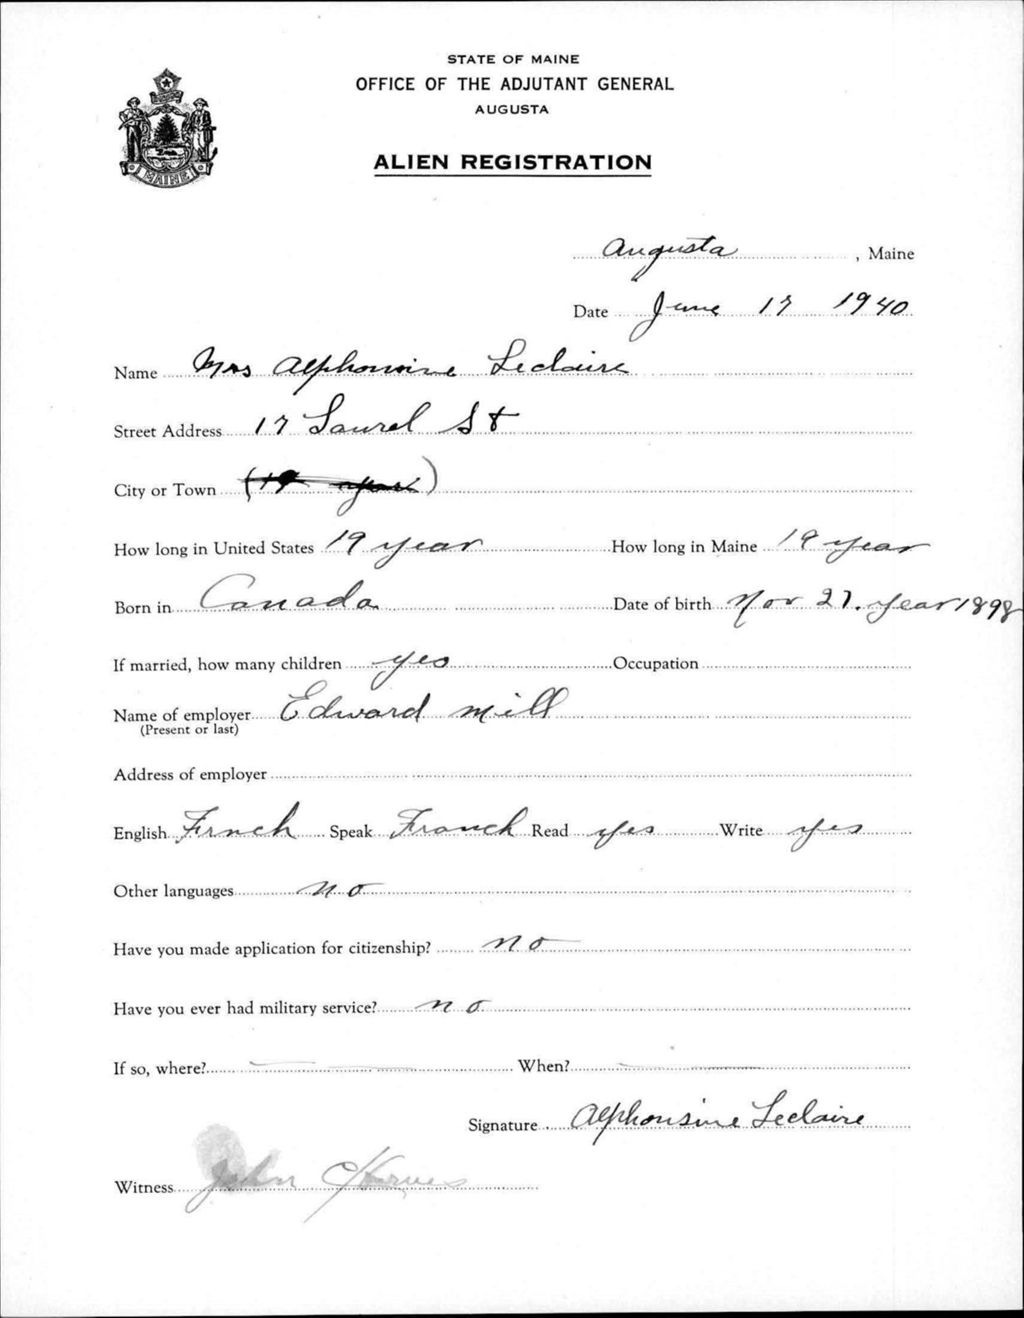 STATE OF MAINE
OFFICE OF THE ADJUTANT GENERAL
AUGUSTA
ALIEN REGISTRATION
MAINE
Augusta, Maine
Date June 17 1940
Name Mrs Alphonsine Leclaire
Street Address 17 Laurel St
City or Town (19 year)
How long in United States 19 year How long in Maine 19 year
Born in Canada Date of birth Nov 27. year 1898
If married, how many children yes Occupation
Name of employer Edward mill
(Present or last)
Address of employer
English Frnch Speak Franch Read yes Write yes
Other languages no
Have you made application for citizenship? no
Have you ever had military service? no
If so, where? When?
Signature Alphonsine Leclaire
Witness John